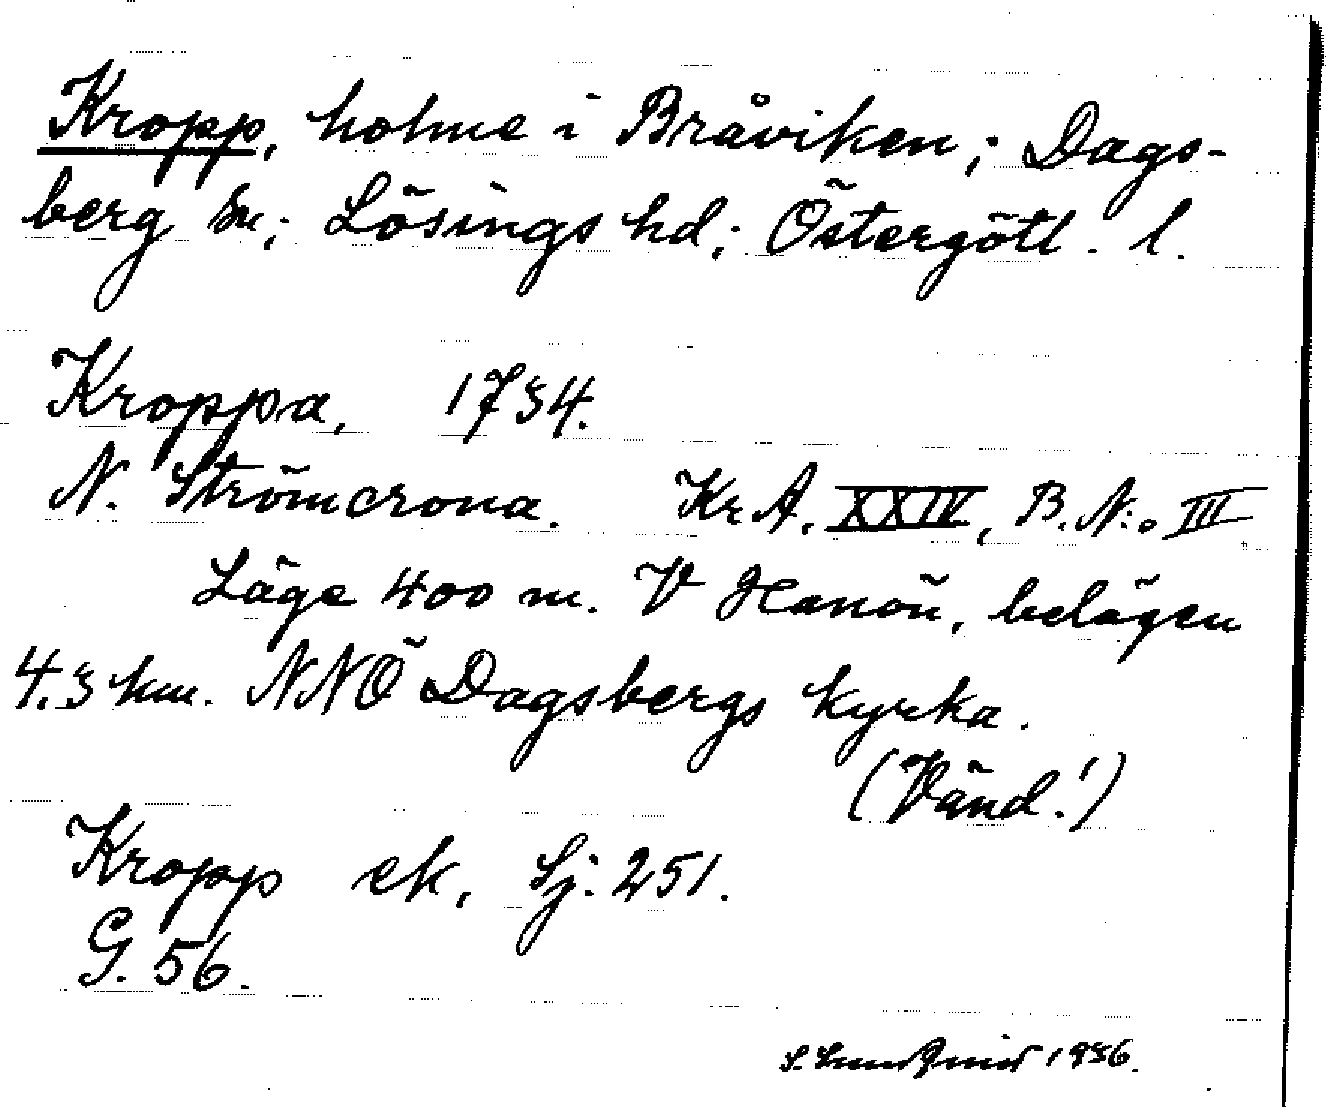 Kropp, holme i Bråviken; Dags-
berg sn; Lösings hd; Östergötl. l.
Kroppa, 1734.
N. Strömcrona. Kr A. XXIV, B. N:o III
Läge 400 m. V Hanön, belägen
4.3 km. NNÖ Dagsbergs kyrka.
(Vänd!)
Kropp ek, Sj. 251.
G. 56.
S. Lundqvist 1936.